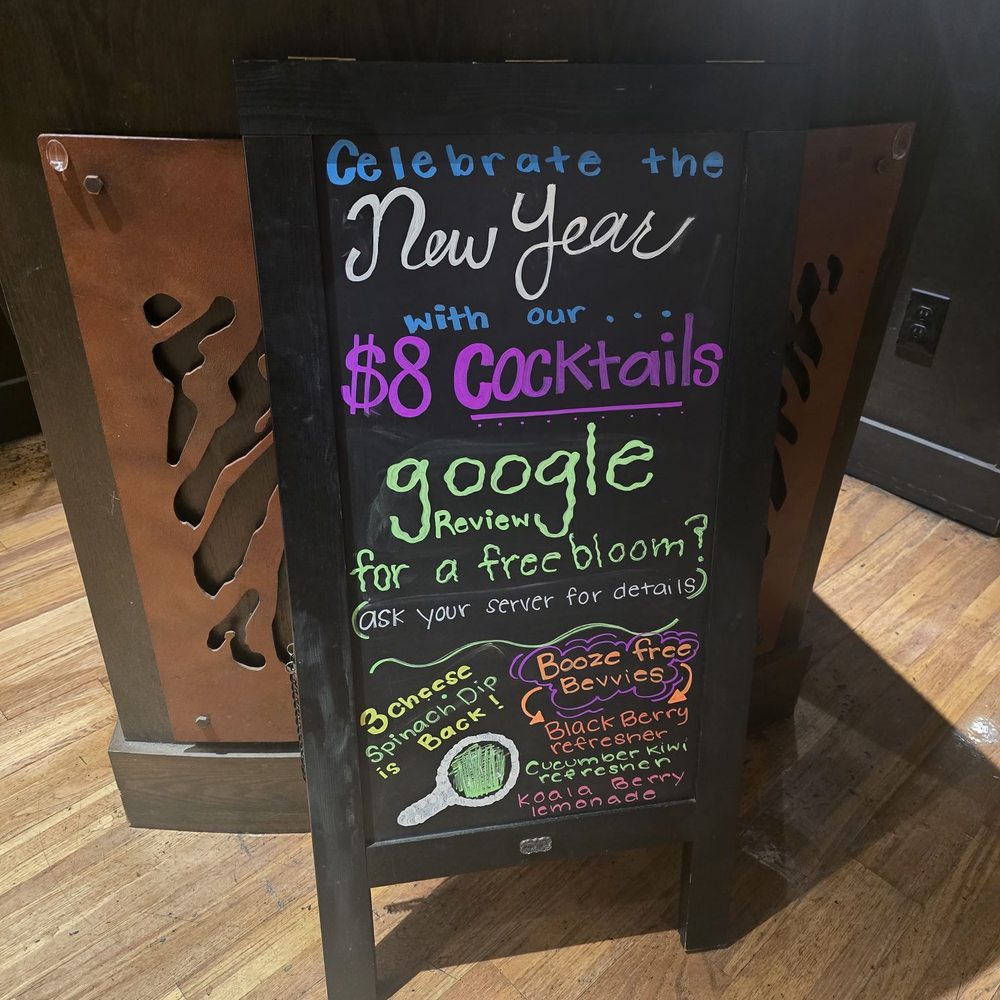 Celebrate the
New Year
with our...
$8 Cocktails
google
Review
for a free bloom?
(ask your server for details)
3 cheese
Spinach Dip
is Back!
Booze free
Bevvies
BlackBerry
refresher
Cucumber Kiwi
refresher
Koala Berry
lemonade